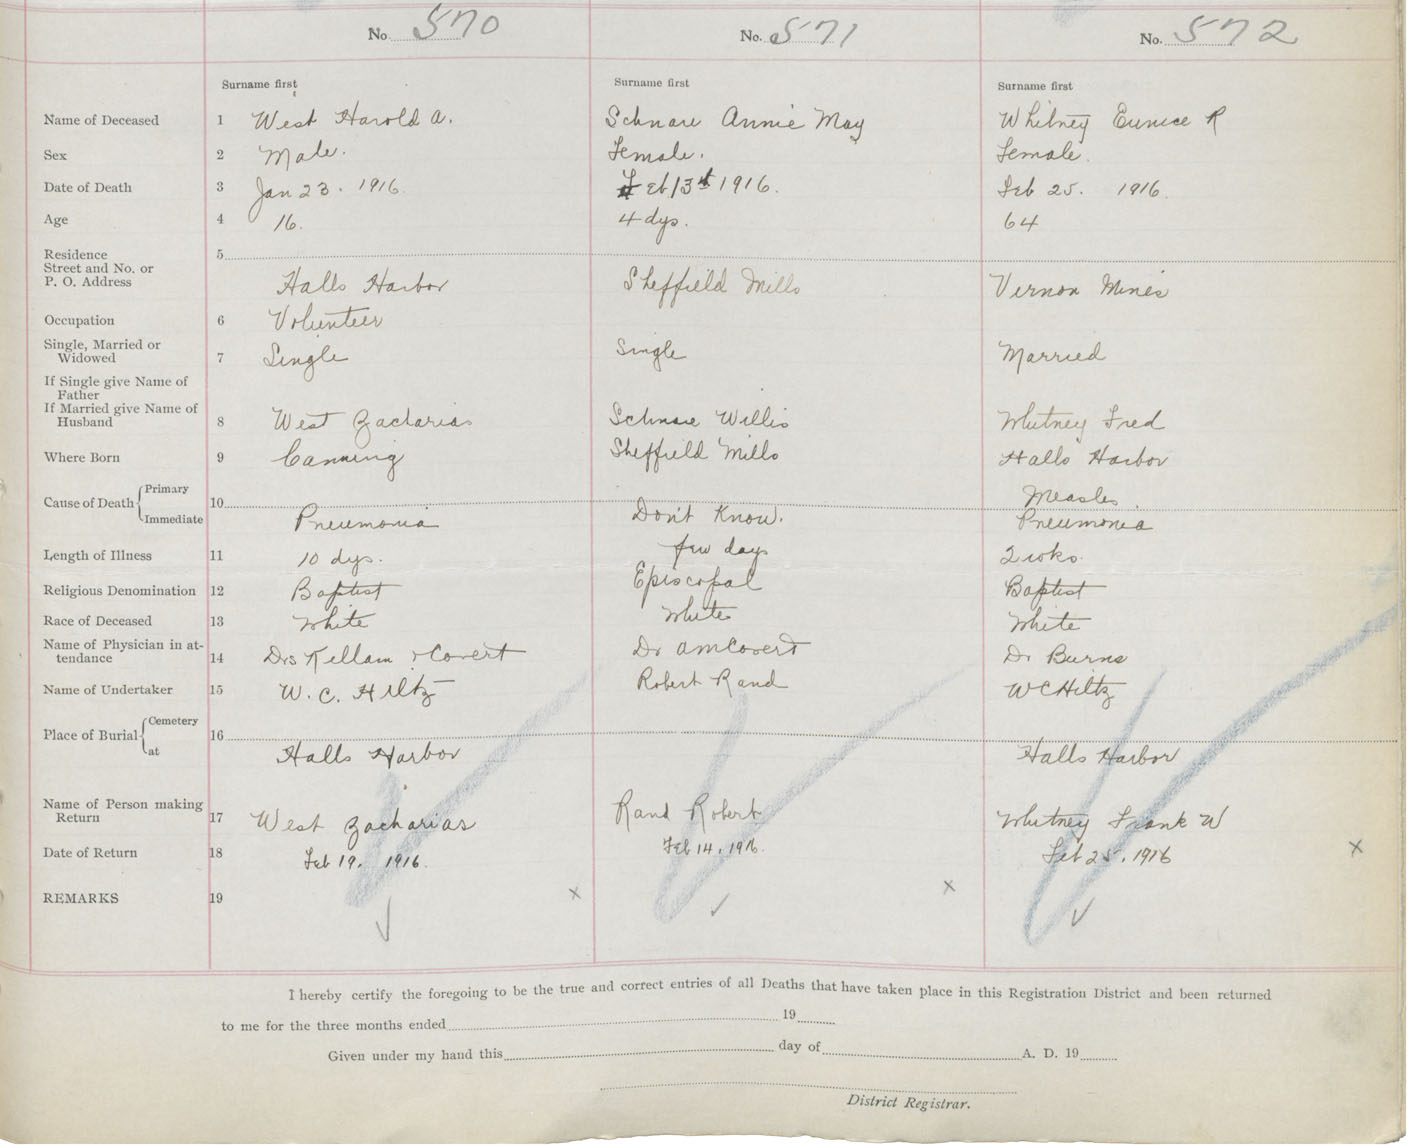 No. 570 No. 571 No. 572
Surname first Surname first Surname first
Name of Deceased 1 West Harold A. Schnare Annie May Whitney Eunice R
Sex 2 Male. Female. Female.
Date of Death 3 Jan 23. 1916. Feb 13th 1916. Feb 25. 1916.
Age 4 16. 4 dys. 64
Residence 5
Street and No. or
P. O. Address Halls Harbor Sheffield Mills Vernon Mines
Occupation 6 Volunteer
Single, Married or
Widowed 7 Single Single Married
If Single give Name of
Father
If Married give Name of
Husband 8 West Zacharias Schnare Willis Whitney Fred
Where Born 9 Canning Sheffield Mills Halls Harbor
Cause of Death Primary 10 Measles
Immediate Pneumonia Don't Know. Pneumonia
Length of Illness 11 10 dys. few days 2 wks.
Religious Denomination 12 Baptist Episcopal Baptist
Race of Deceased 13 White White White
Name of Physician in at-
tendance 14 Drs Kellam & Covert Dr AM Covert Dr Burns
Name of Undertaker 15 W. C. Hiltz Robert Rand W C Hiltz
Place of Burial Cemetery 16
at Halls Harbor Halls Harbor
Name of Person making
Return 17 West Zacharias Rand Robert Whitney Frank W
Date of Return 18 Feb 19. 1916. Feb 14. 1916. Feb 25. 1916
REMARKS 19
I hereby certify the foregoing to be the true and correct entries of all Deaths that have taken place in this Registration District and been returned
to me for the three months ended 19
Given under my hand this day of A. D. 19
District Registrar.